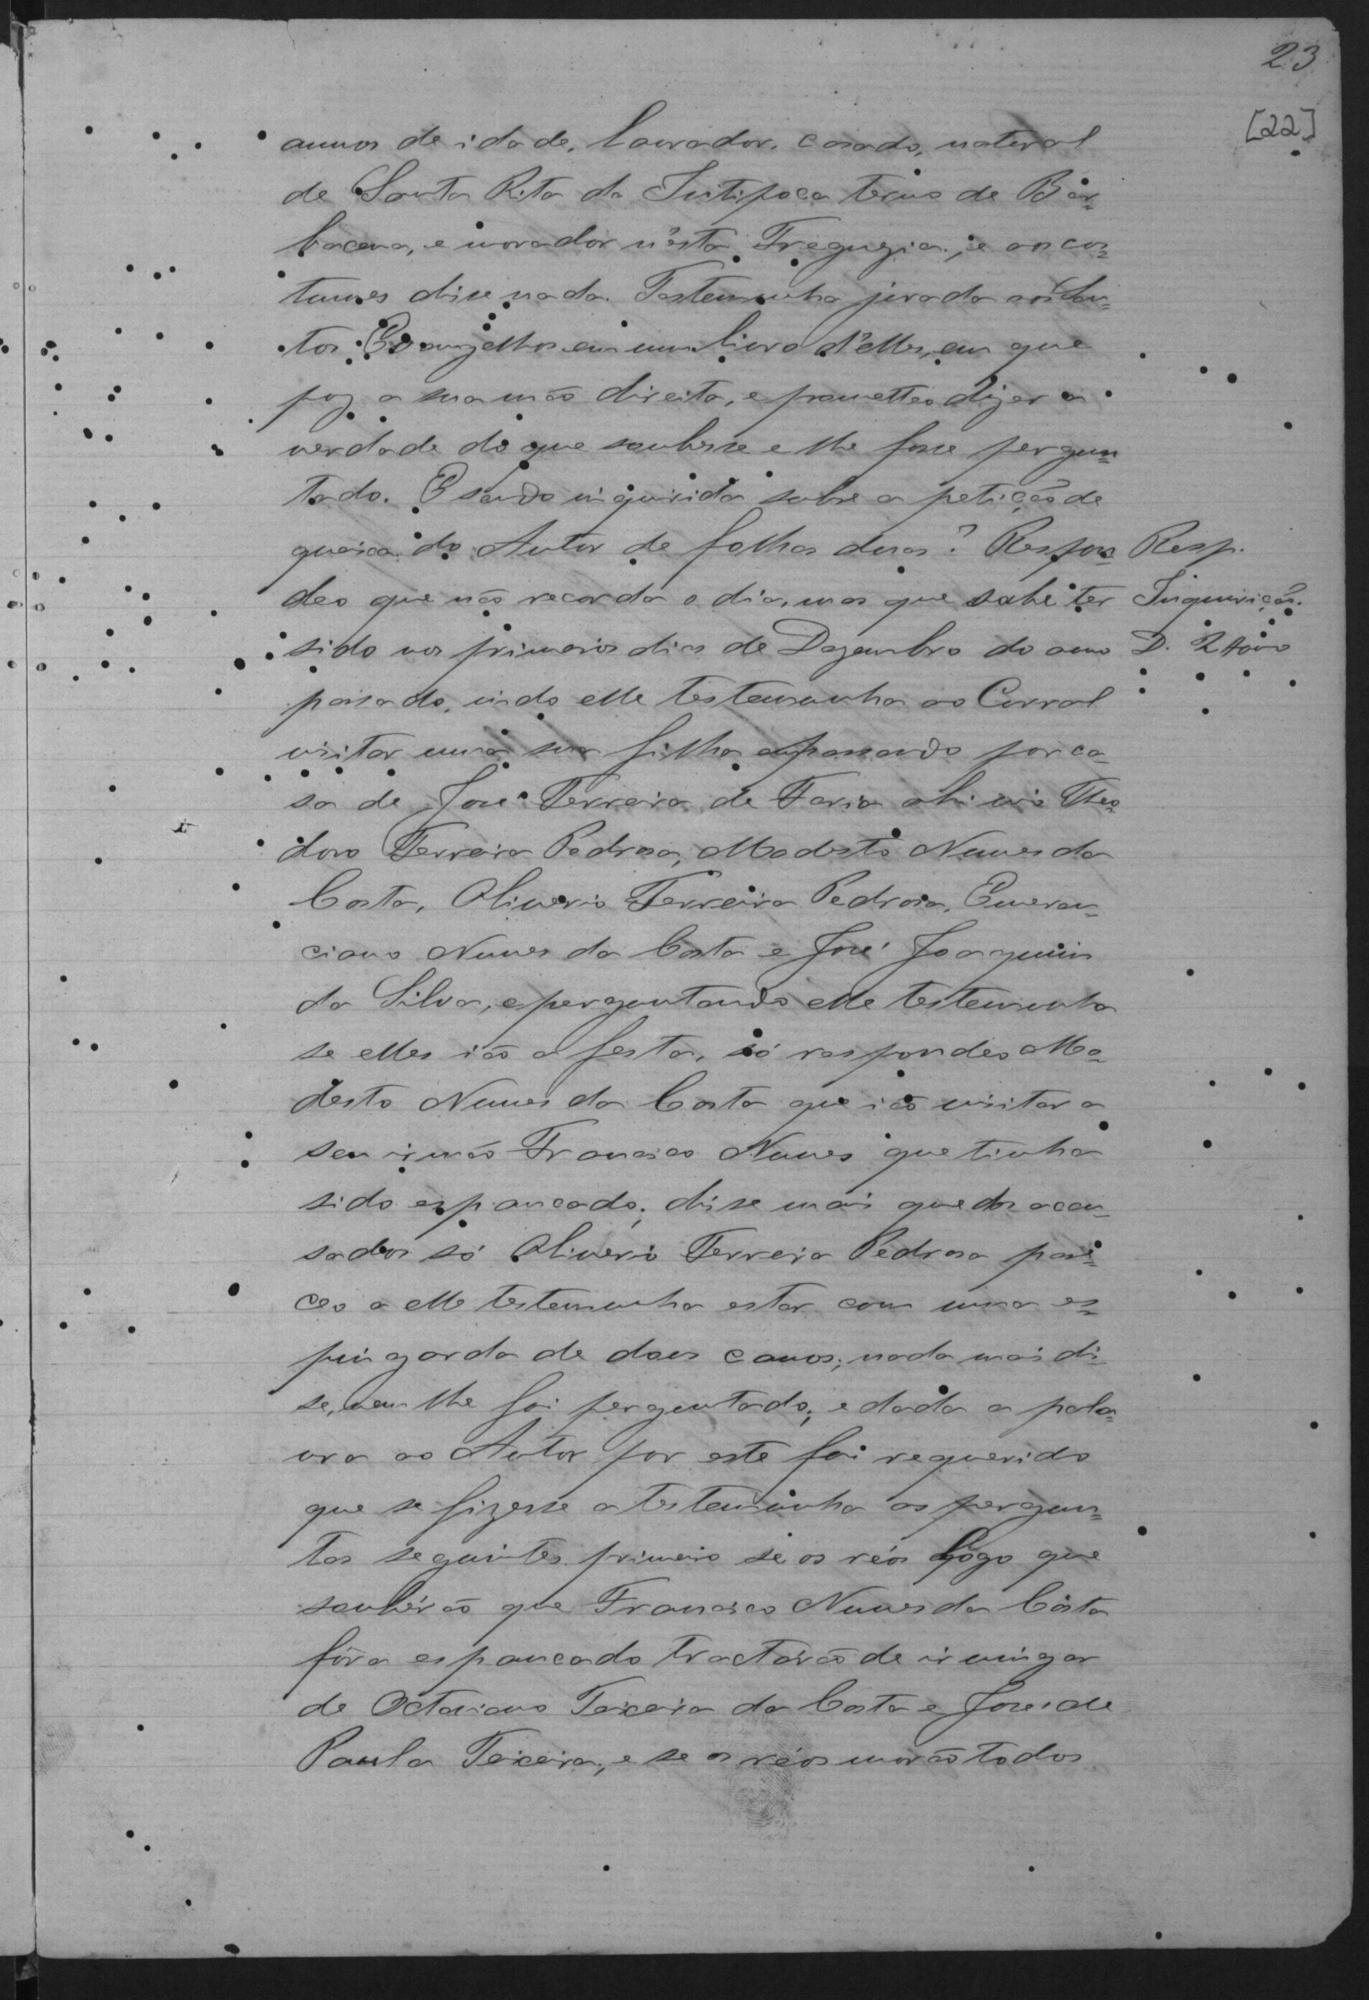 23
[22]
annos de idade, lavrador, casado, natural
de Santa Rita da Ibitipoca termo de Bar=
bacena, e morador n'esta Freguezia; e aos cos=
tumes disse nada. Testemunha jurada aos San=
tos Evangelhos em um livro d'elles, em que
poz a sua mão direita, e prometteo dizer a
verdade do que soubesse e lhe fosse pergun=
tado. E sendo inquirida sobre a petição de
queixa do Autor de folhas duas? Respon= Resp.
deo que não recorda o dia, mas que sabe ter Inquirição.
sido nos primeiros dias de Dezembro do anno D.
passado, indo elle testemunha ao Curral
visitar uma sua filha e passando por ca=
sa de José Ferreira de Faria ahi vio Theo=
doro Ferreira Pedrosa, Modesto Nunes da
Costa, Oliverio Ferreira Pedrosa, Emeren=
ciano Nunes da Costa e José Joaquim
da Silva, e perguntando elle testemunha
se elles ião a festa, só respondeo Mo=
desto Nunes da Costa que ião visitar a
seu irmão Francisco Nunes que tinha
sido espancado; disse mais que dos accu=
sados só Oliverio Ferreira Pedrosa pare=
ceo a elle testemunha estar com uma es=
pingarda de dous canos; nada mais di
se, nem lhe foi perguntado; e dada a pala=
vra ao Autor por este foi requerido
que se fizesse a testemunha as pergun=
tas seguintes primeiro se os réos logo que
soubérão que Francisco Nunes da Costa
fôra espancado tractárão de ir vingar
de Octaviano Teixeira da Costa e José de
Paula Teixeira; e se os réos morão todos